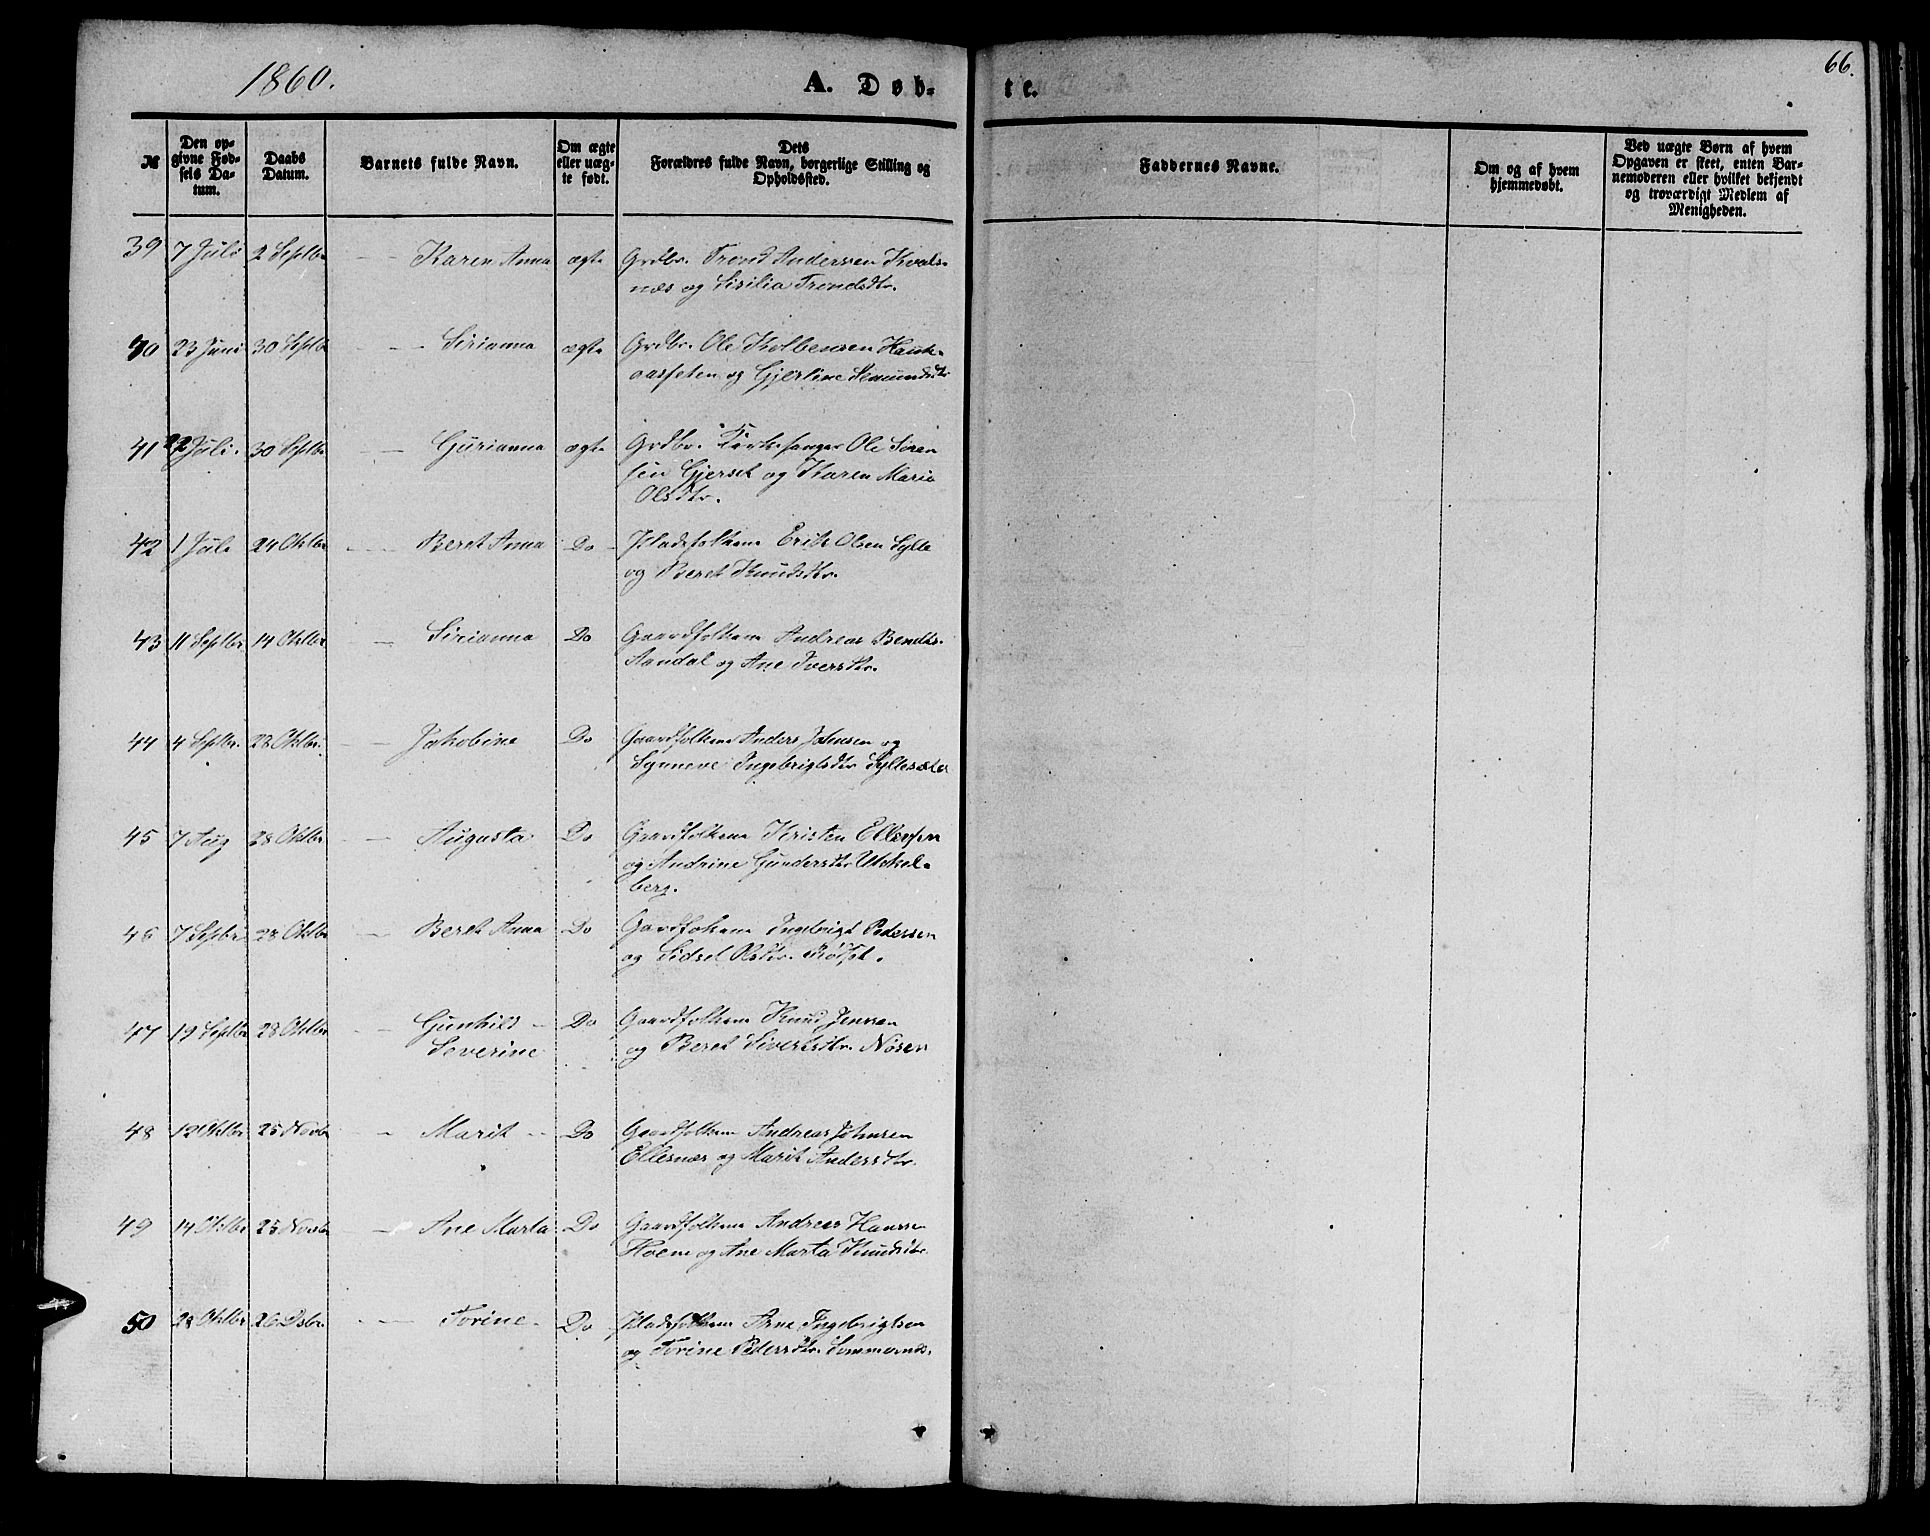 1860.
A. Døb-
te.
66.
№
Den op-
givne Fød-
sels Da-
tum.
Daabs
Datum.
Barnets fulde Navn.
Om ægte
eller uæg-
te født.
Dets
Forældres fulde Navn, borgerlige Stilling og
Opholdssted.
Faddernes Navne.
Om og af hvem
hjemmedøbt.
Ved uægte Børn af hvem
Opgaven er skeet, enten Bar-
nemoderen eller hvilket bekjendt
og troværdigt Medlem af
Menigheden.
39 7 Juli 2 Septbr Karen Anna ægte Grdbr. Trond Andersen Kvals-
næs og Sisilia Trondsdtr.
40 23 Juni 30 Septbr Sirianna ægte Grdbr. Ole Kolbensen Hauk-
aasfeten og Gjertine Semundsdtr
41 22 Juli. 30 Septbr Gurianna ægte Grdbr. Kirkesanger Ole Søren
sen Gjerset og Karen Maria
Olsdtr.
42 1 Juli 24 Oktbr Beret Anna Do Pladsfolkene Erik Olsen Sylte
og Beret Knudsdtr.
43 11 Septbr 14 Oktbr Sirianna Do Gaardfolkene Andreas Bendts.
Aandal og Ane Iversdtr.
44 4 Septbr. 28 Oktbr. Jakobine Do Gaardfolkene Anders Johnsen og
Synneve Ingebrigtsdtr Syltesæter
45 7 Aug 28 Oktbr Augusta Do Gaardfolkene Kristen Ellefsen
og Andrine Gundersdtr
berg.
46 7 Septbr 28 Oktbr Beret Anna Do Gaardfolkene Ingebrigt Pedersen
og Sidsel Olsdtr.
47 19 Septbr 28 Oktbr Gunhild Do Gaardfolkene Knud Jenssen
Severine og Beret Sivertsdtr. Nosen
48 12 Oktbr 25 Novbr Marit Do Gaardfolkene Andreas Johnsen
Ellesnæs og Marit Andersdtr.
49 14 Oktbr 25 Novbr Ane Marta Do Gaardfolkene Andreas Hanssen
Hoem og Ane Marta Knudsdtr.
50 28 Oktbr 26 Dsbr. Torine Do Pladsfolkene Arne Ingebrigtsen
og Torine Pedersdtr.